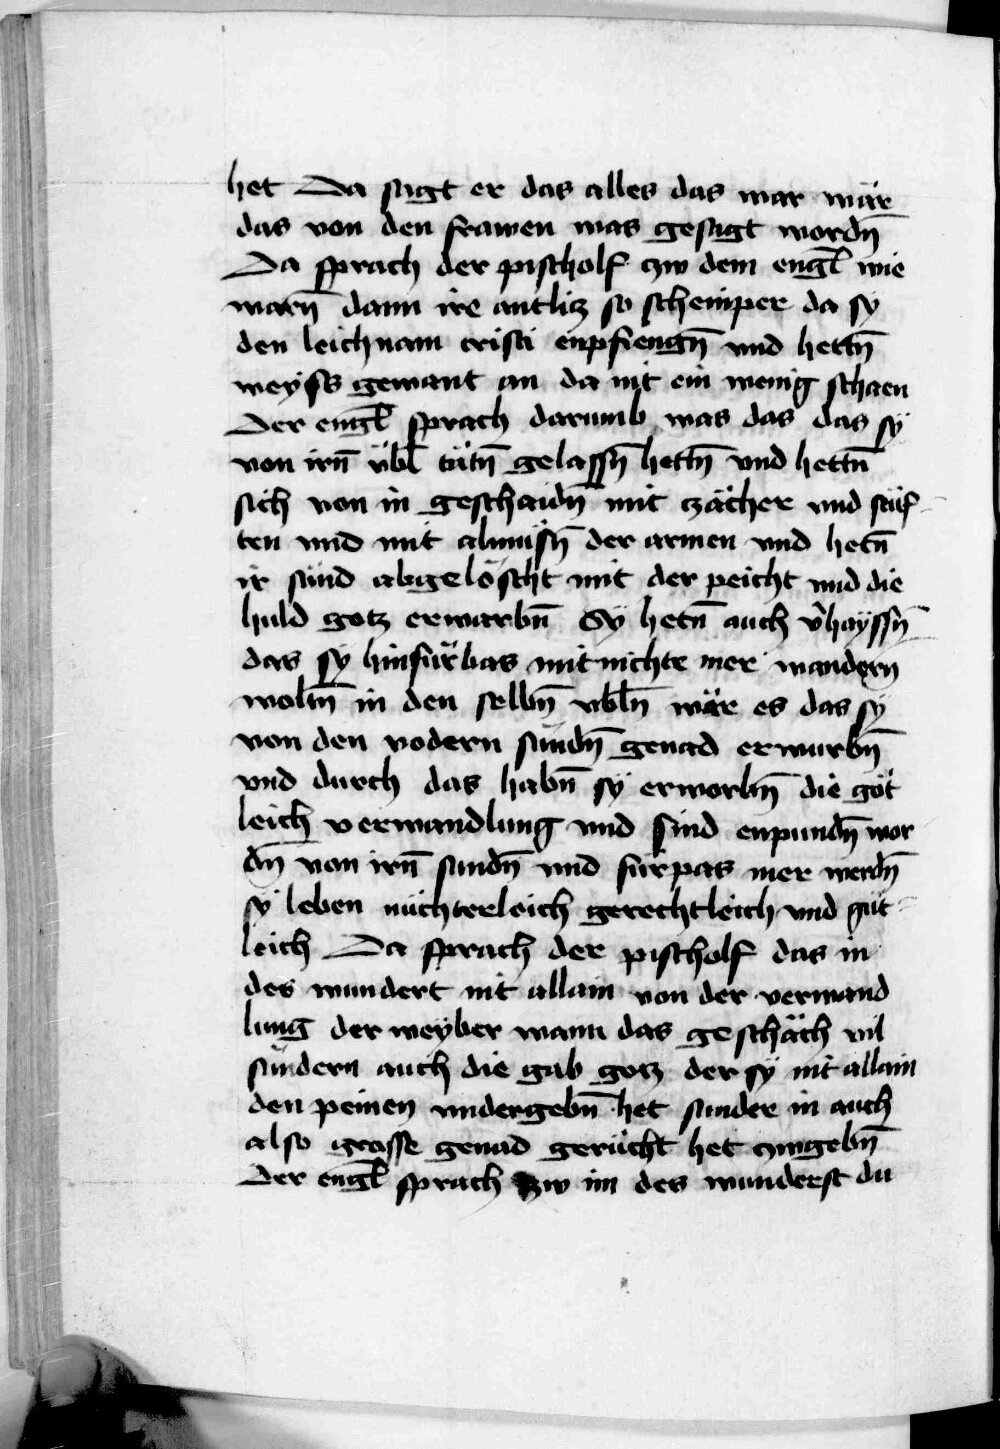 het Da sagt er das alles das war wär
das von den frawen was gesagt wordn̄
Da sprach der pischolf zw dem engl̄ wie
warn̄ dann ire antlitz so scheinper da sÿ
den leichnam cristi enpfiengn̄ und hettn̄
weÿss gewant an da nit ein wenig schaen
Der engl̄ sprach darumb was das das sÿ
von irn̄ übl̄ tätn̄ gelassn̄ hettn̄ vnd hettn̄
sich von in geschaidn̄ mit zächer vnd säüf-
ten vnd mit almüsn̄ der armen vnd hetn̄
ir sünd abgelöscht mit der peicht vnd die
huld gotz erwarbn̄ Sÿ hetn̄ auch v̄haÿssn̄
das sÿ hinfürbas mit nichte mer wandern
woltn̄ in den selbn̄ vbl̄n wär es das sÿ
von den vodern sündn̄ genad erwurbn̄
vnd durch das habn̄ sÿ erworbn̄ die göt
leich verwandlung vnd sind enpundn̄ wor
dn̄ von irn̄ sündn̄ vnd fürpas mer werdn̄
sÿ leben nüchterleich gerechtleich vnd güt-
leich Da sprach der pischolf das in
des wundert nit allain von der verwand
lung der weÿber wann das geschäch vil
sündern auch die gab gotz der sÿ nit allain
den peinen vndergebn̄ het sunder in auch
also grosse genad gerücht het zwgebn̄
Der engl̄ sprach zw im des wunderst du